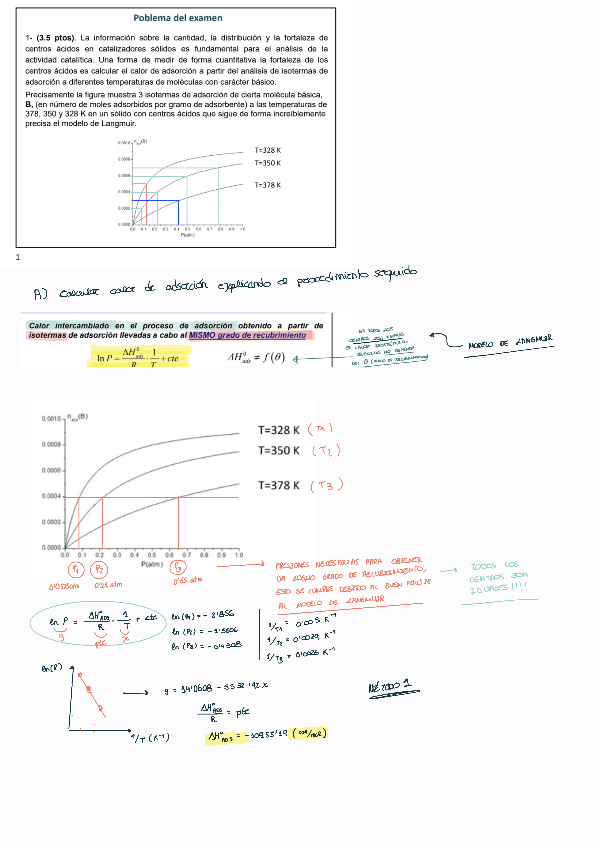 Poblema del examen
1- (3.5 ptos). La información sobre la cantidad, la distribución y la fortaleza de
centros ácidos en catalizadores sólidos es fundamental para el análisis de la
actividad catalítica. Una forma de medir de forma cuantitativa la fortaleza de los
centros ácidos es calcular el calor de adsorción a partir del análisis de isotermas de
adsorción a diferentes temperaturas de moléculas con carácter básico.
Precisamente la figura muestra 3 isotermas de adsorción de cierta molécula básica,
B, (en número de moles adsorbidos por gramo de adsorbente) a las temperaturas de
378, 350 y 328 K en un sólido con centros ácidos que sigue de forma increíblemente
precisa el modelo de Langmuir.
0.0010 n_ads(B)
0.0008
0.0006
0.0004
0.0002
0.0000
0.0 0.1 0.2 0.3 0.4 0.5 0.6 0.7 0.8 0.9 1.0
P(atm)
T=328 K
T=350 K
T=378 K
1
A) Calcular calor de adsorción explicando el procedimiento seguido
Calor intercambiado en el proceso de adsorción obtenido a partir de
isotermas de adsorción llevadas a cabo al MISMO grado de recubrimiento
ln P = ΔH⁰ads / R · 1 / T + cte
ΔH⁰ads ≠ f(θ)
MODELO DE LANGMUIR
0.0010 n_ads(B)
0.0008
0.0006
0.0004
0.0002
0.0000
0.0 0.1 0.2 0.3 0.4 0.5 0.6 0.7 0.8 0.9 1.0
P(atm)
T=328 K (T1)
T=350 K (T2)
T=378 K (T3)
P1 P2 P3
0'21 atm
0'65 atm
PRESIONES NECESARIAS PARA OBTENER
UN MISMO GRADO DE RECUBRIMIENTO,
ESTO SE CUMPLE DEBIDO AL BUEN AJUSTE
AL MODELO DE LANGMUIR
TODOS LOS
CENTROS SON
IGUALES !!!!
ln P = ΔH°ADS / R · 1 / T + cte
y pte x
ln(P1) = -2'856
ln(P2) = -1'5606
ln(P3) = -0'4308
1/T1 = 0'003 K⁻¹
1/T2 = 0'0029 K⁻¹
1/T3 = 0'0026 K⁻¹
ln(P)
1/T (K⁻¹)
ΔH°ADS / R = pte
MÉTODO 1